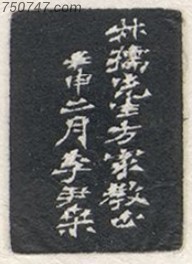 750747.com
林孺先生方家教正
庚申二月李尹桑